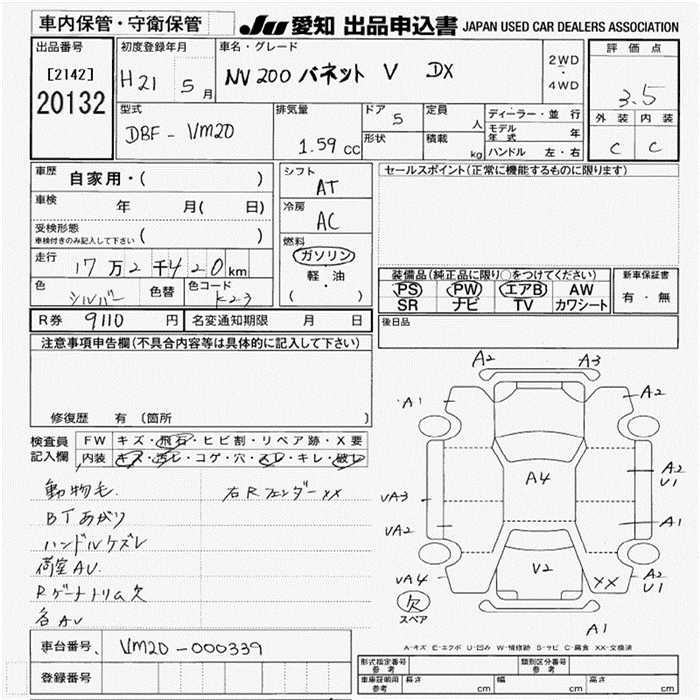 車内保管・守衛保管
JU 愛知 出品申込書 JAPAN USED CAR DEALERS ASSOCIATION
出品番号
[2142]
20132
初度登録年月
H21 5月
車名・グレード
NV200 バネット V DX
2WD
・
4WD
評価点
3.5
外装 内装
C C
型式
DBF-VM20
排気量
1.59cc
ドア
5
形状
定員
人
積載
kg
ディーラー・並行
モデル年式 年
ハンドル 左・右
車歴 自家用・( )
車検 年 月( 日)
受検形態
車検付きのみ記入して下さい ( )
走行 17万2千420km
色 シルバー 色替 色コード K23
シフト
AT
冷房
AC
燃料
ガソリン
軽・油
( )
セールスポイント(正常に機能するものに限ります)
装備品(純正品に限り○をつけてください)
PS PW エアB AW
SR ナビ TV カワシート
新車保証書
有・無
後日品
R券 9110円 名変通知期限 月 日
注意事項申告欄(不具合内容等は具体的に記入して下さい)
修復歴 有 (箇所
検査員記入欄
FW キズ・飛石・ヒビ割・リペア跡・X要
内装 キズ・汚レ・コゲ・穴・スレ・キレ・破レ
動物毛
右Rフェンダーxx
BTあがり
ハンドルケズレ
荷室AU
Rゲートトリム欠
各AU
A2 A3
A1 A2
A4
UA3 A2 U1
UA2 A1
UA4 V2 XX A2 U1
欠
スペア
A1
A-キズ E-エクボ U-凹ミ W-補修跡 S-サビ C-腐食 XX-交換済
車台番号 VM20-000339
登録番号
形式指定番号 参考
類別区分番号 参考
車庫証明用 参考 長さ cm 幅 cm 高さ cm